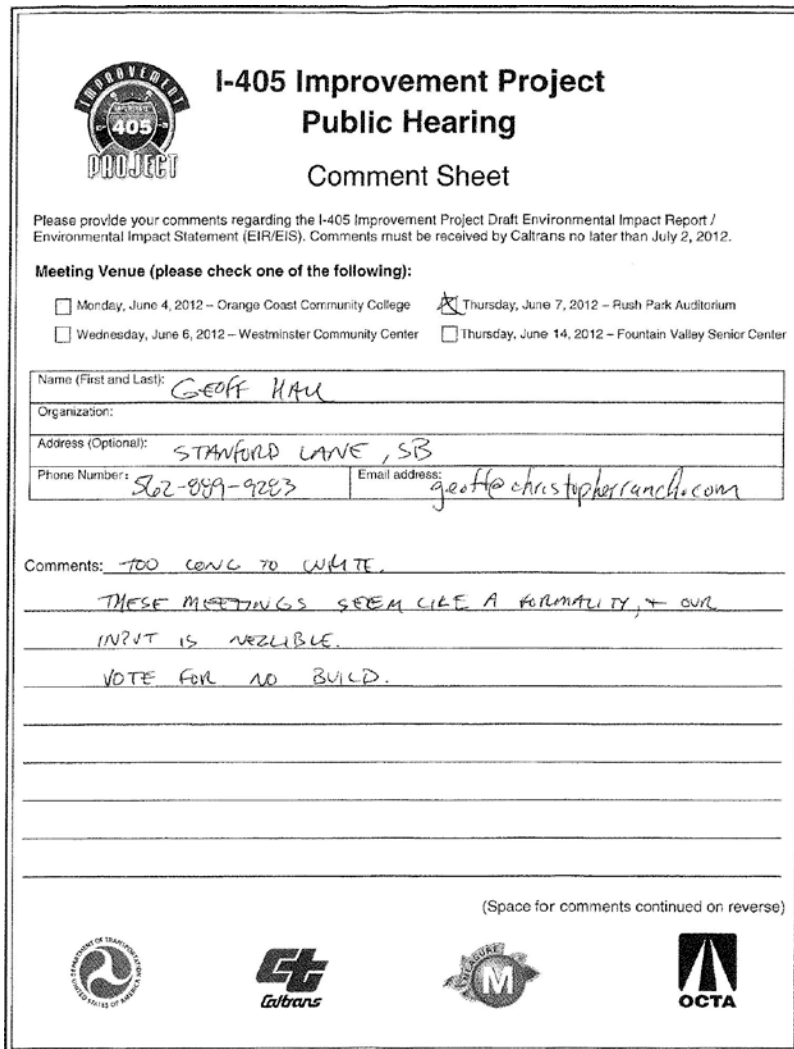 IMPROVEMENT
405
PROJECT
I-405 Improvement Project
Public Hearing
Comment Sheet
Please provide your comments regarding the I-405 Improvement Project Draft Environmental Impact Report /
Environmental Impact Statement (EIR/EIS). Comments must be received by Caltrans no later than July 2, 2012.
Meeting Venue (please check one of the following):
Monday, June 4, 2012 – Orange Coast Community College
Thursday, June 7, 2012 – Rush Park Auditorium
Wednesday, June 6, 2012 – Westminster Community Center
Thursday, June 14, 2012 – Fountain Valley Senior Center
Name (First and Last): GEOFF HALL
Organization:
Address (Optional): STANFORD LANE, SB
Phone Number: 562-889-9283
Email address: geoff@christopherranch.com
Comments: TOO LONG TO WRITE.
THESE MEETINGS SEEM LIKE A FORMALITY, + OUR
INPUT IS NEZLIBLE.
VOTE FOR NO BUILD.
(Space for comments continued on reverse)
DEPARTMENT OF TRANSPORTATION
UNITED STATES OF AMERICA
Ct
Caltrans
MEASURE
M
OCTA